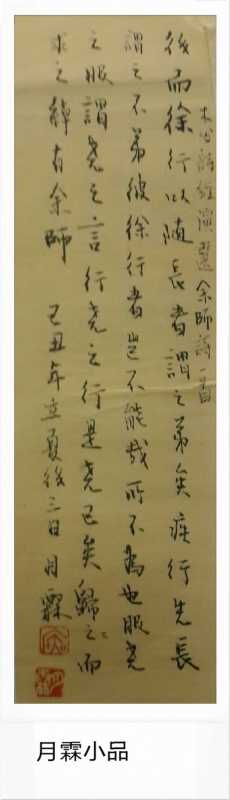 余師詩一首
後而徐行以随長者謂之弟矣疾行先長
謂之不弟彼徐行者豈不能哉所不為也服堯
之服謂堯之言行堯之行是堯已矣歸之而
求之綽有余師 己丑年立夏後三日月霖
月霖小品